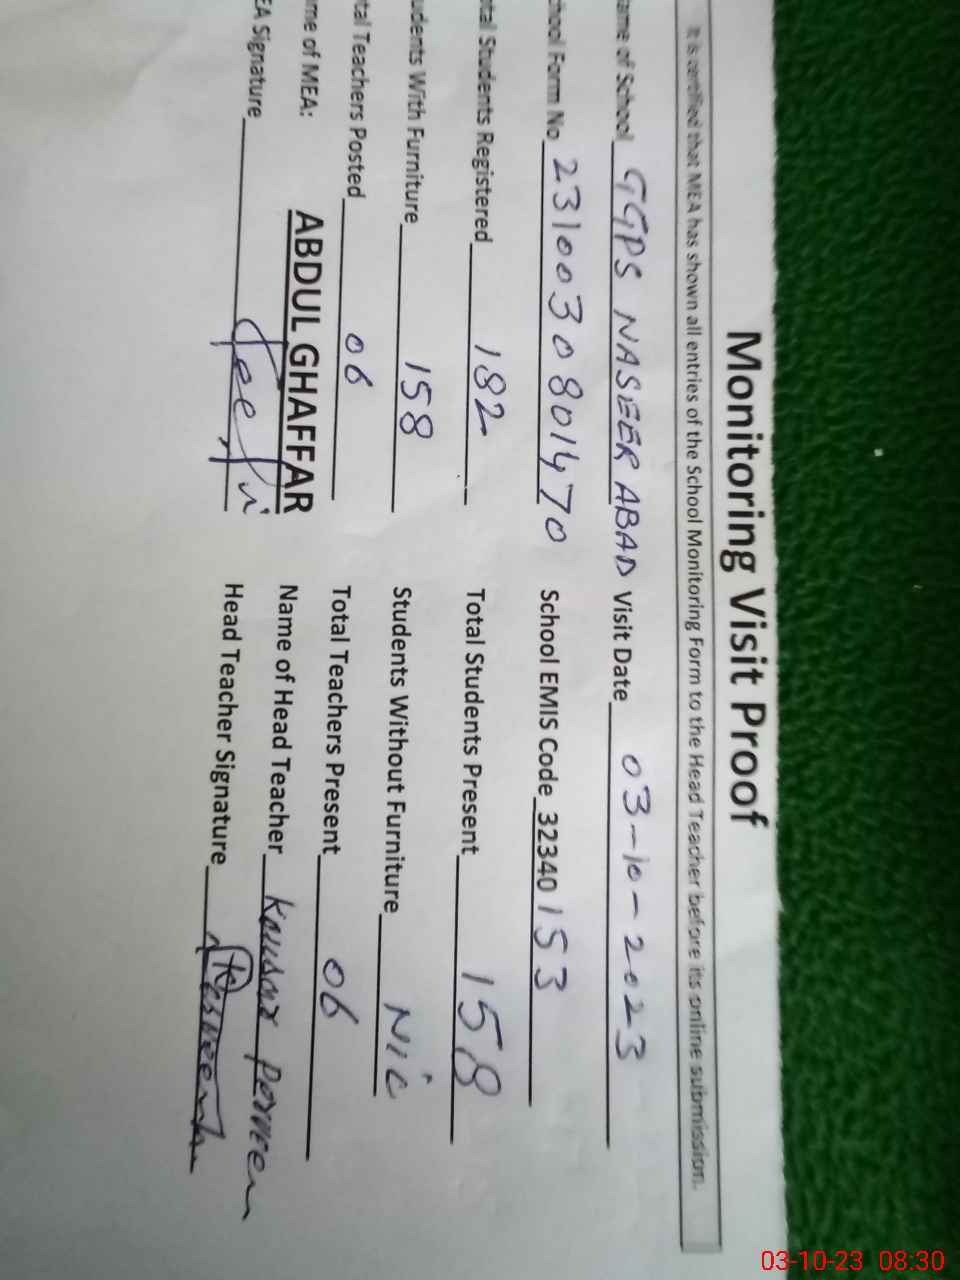 Monitoring Visit Proof
It is certified that MEA has shown all entries of the School Monitoring Form to the Head Teacher before its online submission.
ame of School GGPS NASEER ABAD Visit Date 03-10-2023
chool Form No 2310030801470 School EMIS Code 32340153
otal Students Registered 182 Total Students Present 158
udents With Furniture 158 Students Without Furniture Nil
tal Teachers Posted 06 Total Teachers Present 06
me of MEA: ABDUL GHAFFAR Name of Head Teacher Kausar Perveen
EA Signature Head Teacher Signature
03-10-23 08:30